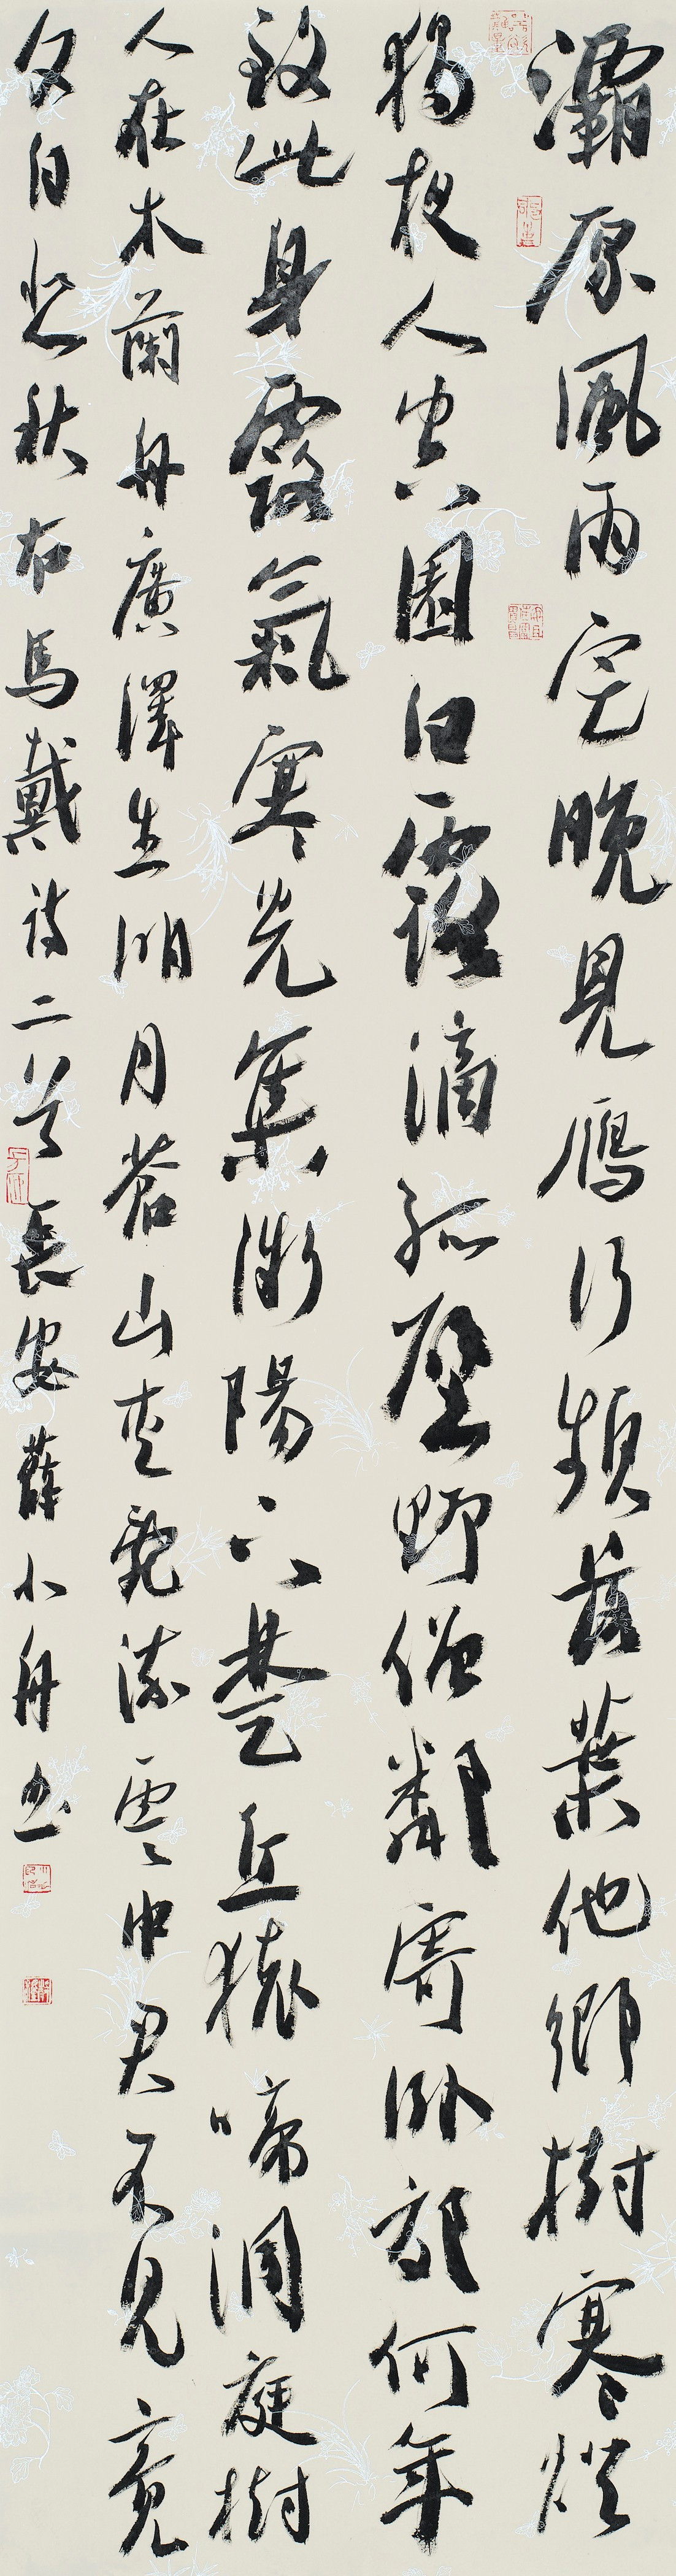 灞原風雨定晚見雁行頻落葉他鄉樹寒燈
獨夜人空園白露滴孤壁野僧鄰寄臥郊何年
致此身露氣寒光集微陽下楚丘猿啼洞庭樹
人在木蘭舟廣澤生明月蒼山夾亂流雲中君不見竟
夕自悲秋右馬戴詩二首長安薛小舟書